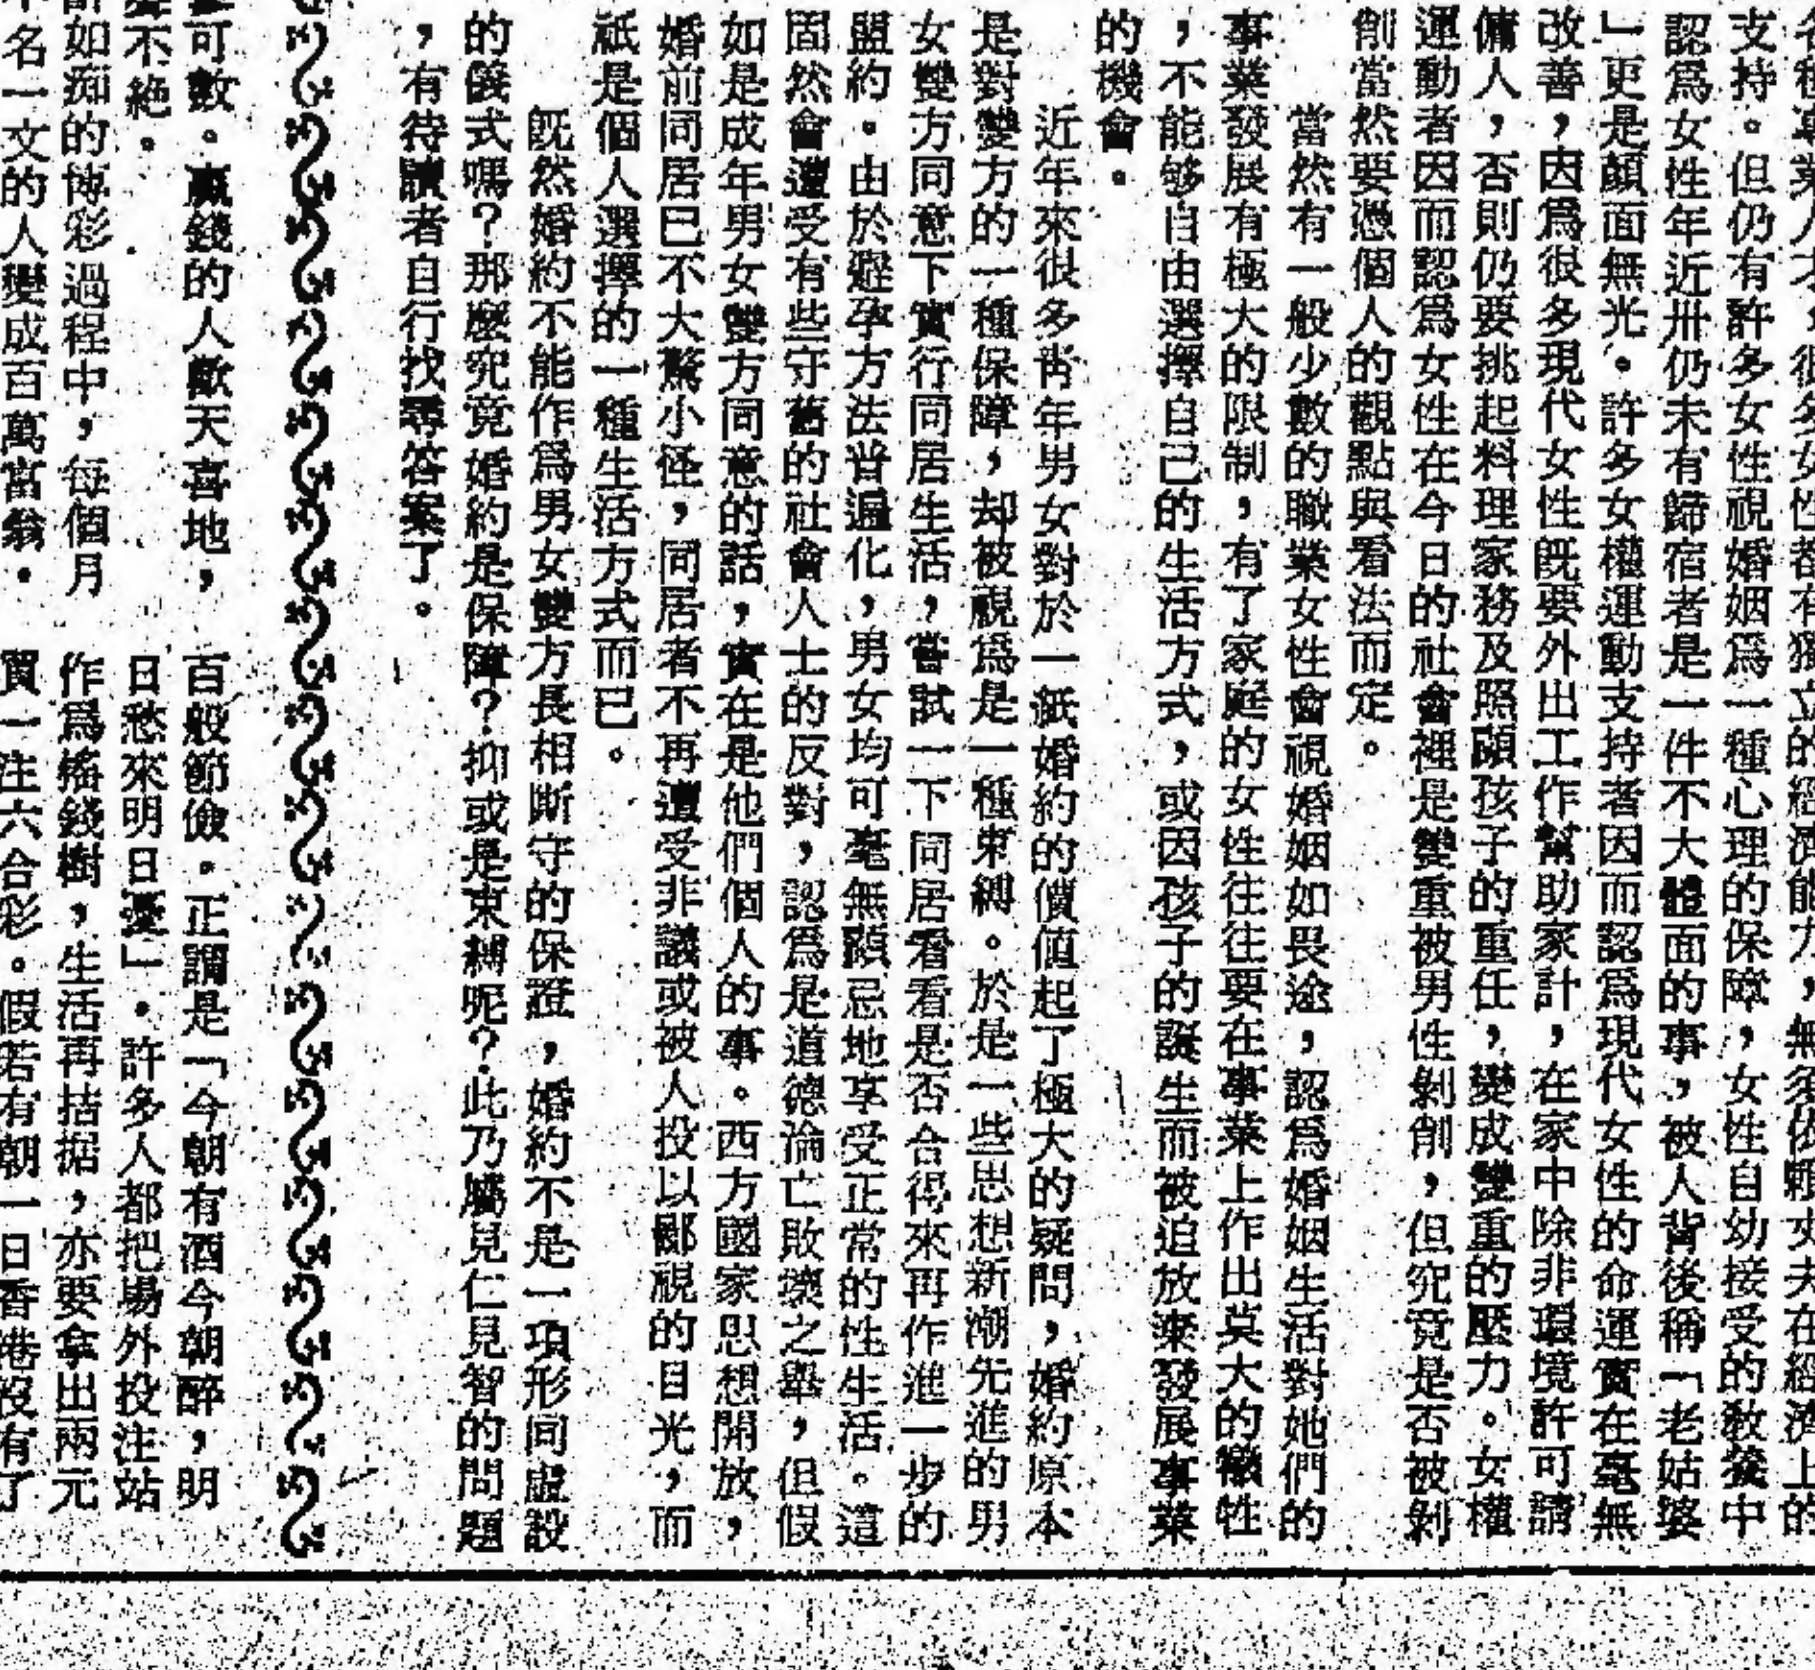 各種專業人才，很多女性都有獨立的經濟能力，無須依賴丈夫在經濟上的
支持。但仍有許多女性視婚姻爲一種心理的保障，女性自幼接受的敎養中
認爲女性年近卅仍未有歸宿者是一件不大體面的事，被人背後稱「老姑婆
」更是顏面無光。許多女權運動支持者因而認爲現代女性的命運實在毫無
改善，因爲很多現代女性旣要外出工作幫助家計，在家中除非環境許可請
傭人，否則仍要挑起料理家務及照顧孩子的重任，變成雙重的壓力。女權
運動者因而認爲女性在今日的社會裡是雙重被男性剝削，但究竟是否被剝
削當然要憑個人的觀點與看法而定。
當然有一般少數的職業女性會視婚姻如畏途，認爲婚姻生活對她們的
事業發展有極大的限制，有了家庭的女性往往要在事業上作出莫大的犧牲
，不能够自由選擇自己的生活方式，或因孩子的誕生而被迫放棄發展事業
的機會。
近年來很多靑年男女對於一紙婚約的價值起了極大的疑問，婚約原本
是對雙方的一種保障，却被視爲是一種束縛。於是一些思想新潮先進的男
女雙方同意下實行同居生活，嘗試一下同居看看是否合得來再作進一步的
盟約。由於避孕方法普遍化，男女均可毫無顧忌地享受正常的性生活。這
固然會遭受有些守舊的社會人士的反對，認爲是道德淪亡敗壞之舉，但假
如是成年男女雙方同意的話，實在是他們個人的事。西方國家思想開放，
婚前同居已不大驚小怪，同居者不再遭受非議或被人投以鄙視的目光，而
祇是個人選擇的一種生活方式而已。
旣然婚約不能作爲男女雙方長相廝守的保證，婚約不是一項形同虛設
的儀式嗎？那麼究竟婚約是保障？抑或是束縛呢？此乃屬見仁見智的問題
，有待讀者自行找尋答案了。
可數。贏錢的人歡天喜地，
不絶。
如痴的博彩過程中，每個月
不名一文的人變成百萬富翁。
百般節儉。正謂是「今朝有酒今朝醉，明
日愁來明日憂」。許多人都把場外投注站
作爲搖錢樹，生活再拮据，亦要拿出兩元
買一注六合彩。假若有朝一日香港沒有了